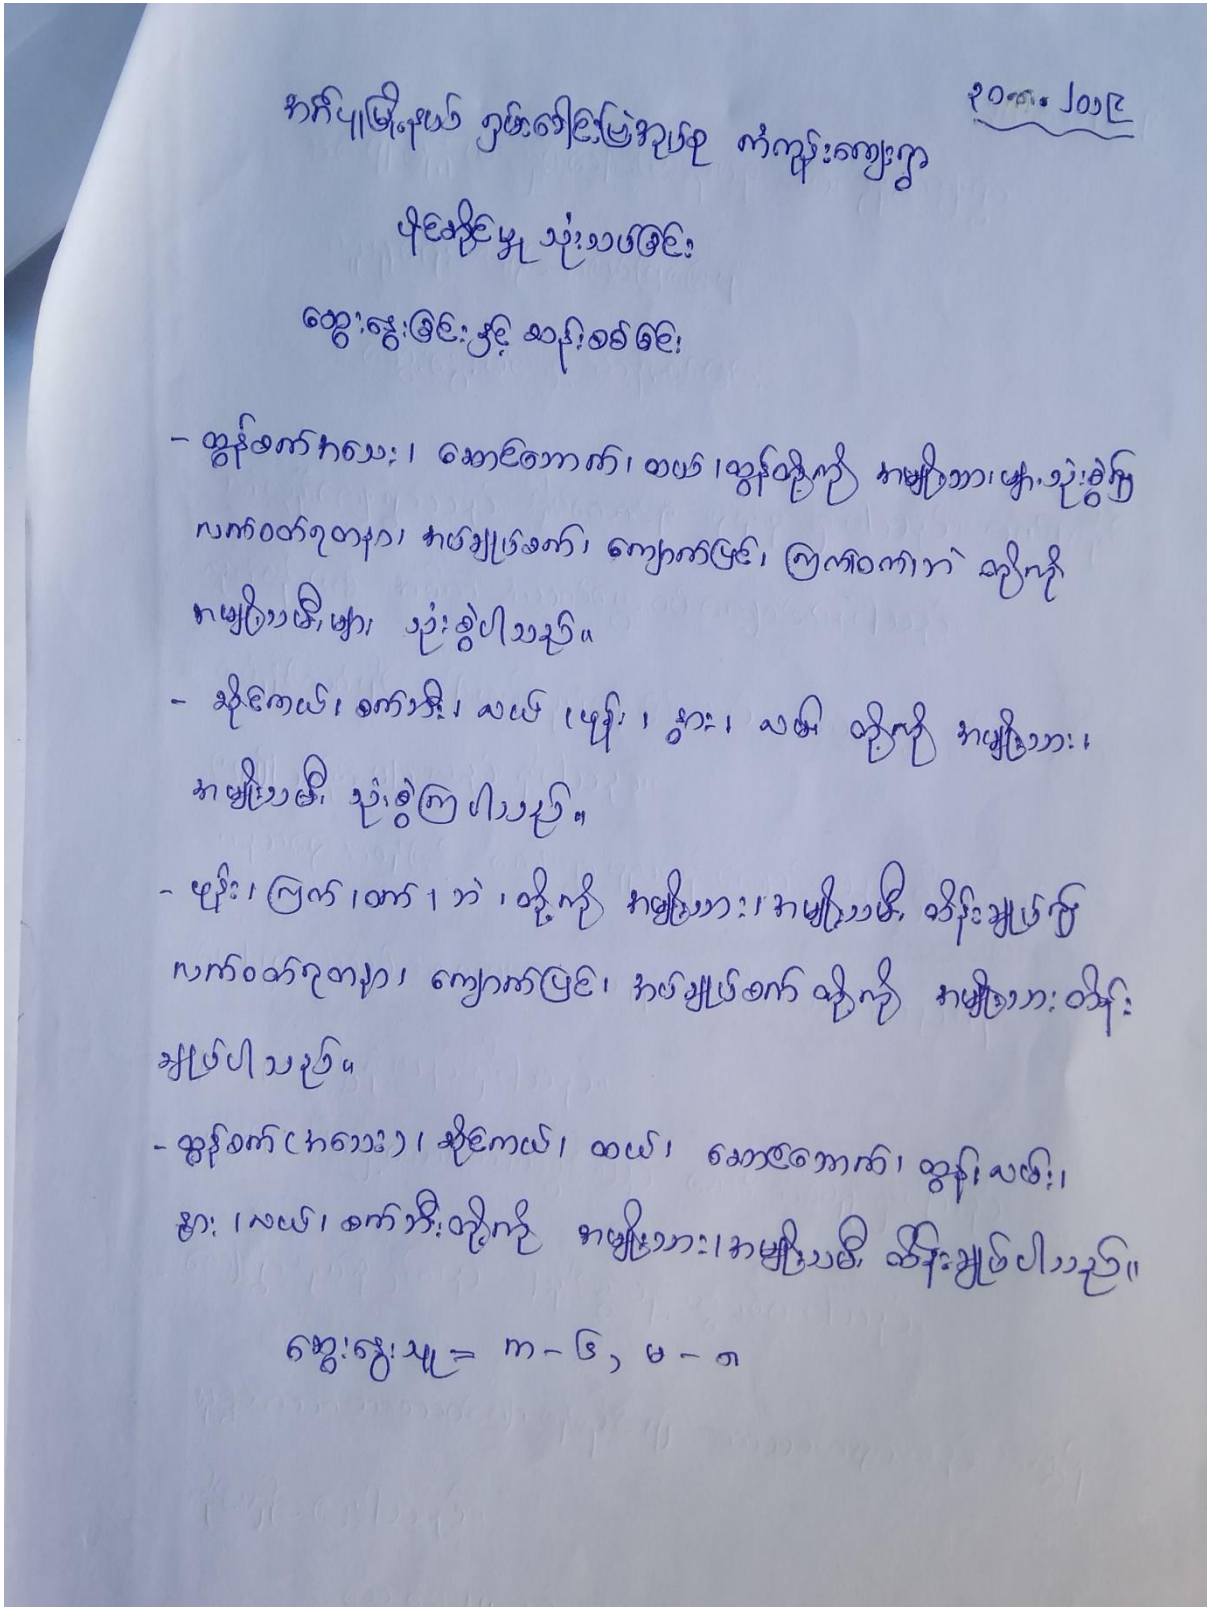 ၂၀၁၉
အင်္ဂပူမြို့နယ် ရှမ်းခေါင်းမြဲအုပ်စု ကံကုန်းကျေးရွာ
ပိုင်ဆိုင်မှု သုံးသပ်ခြင်း
ဆွေးနွေးခြင်းနှင့် ဆန်းစစ်ခြင်း
- ထွန်စက်အသေး၊ ဆောင်ဘောက်၊ ထယ်၊ ထွန်တို့ကို အမျိုးသားများ သုံးစွဲ၍
လက်ဝတ်ရတနာ၊ အပ်ချုပ်စက်၊ ကျောက်ပြင်၊ ကြက်၊ ဝက်၊ ဘဲ တို့ကို
အမျိုးသမီးများ သုံးစွဲပါသည်။
- ဆိုင်ကယ်၊ စက်ဘီး၊ လယ်၊ ဖုန်း၊ နွား၊ လမ်း တို့ကို အမျိုးသား၊
အမျိုးသမီး သုံးစွဲကြပါသည်။
- ဖုန်း၊ ကြက်၊ ဝက်၊ ဘဲ၊ တို့ကို အမျိုးသား၊ အမျိုးသမီး ထိန်းချုပ်၍
လက်ဝတ်ရတနာ၊ ကျောက်ပြင်၊ အပ်ချုပ်စက် တို့ကို အမျိုးသား ထိန်း
ချုပ်ပါသည်။
- ထွန်စက် (အသေး)၊ ဆိုင်ကယ်၊ ထယ်၊ ဆောင်ဘောက်၊ ထွန်၊ လမ်း၊
နွား၊ လယ်၊ စက်ဘီးတို့ကို အမျိုးသား၊ အမျိုးသမီး ထိန်းချုပ်ပါသည်။
ဆွေးနွေးသူ = ကျ - ၆, မ - ၈